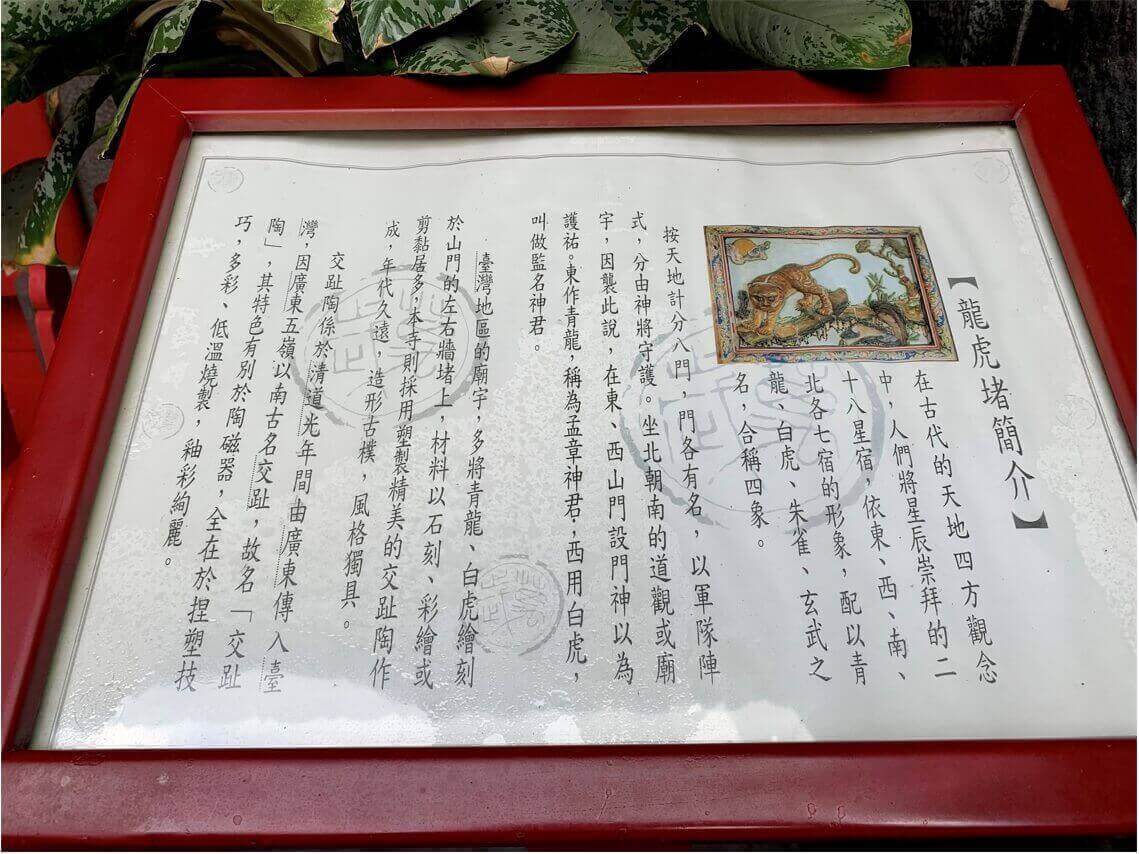 【龍虎堵簡介】
在古代的天地四方觀念
中，人們將星辰崇拜的二
十八星宿，依東、西、南、
北各七宿的形象，配以青
龍、白虎、朱雀、玄武之
名，合稱四象。
按天地計分八門，門各有名，以軍隊陣
式，分由神將守護。坐北朝南的道觀或廟
宇，因襲此說，在東、西山門設門神以為
護祐。東作青龍，稱為孟章神君，西用白虎，
叫做監名神君。
臺灣地區的廟宇，多將青龍、白虎繪刻
於山門的左右牆堵上，材料以石刻、彩繪或
剪黏居多，本寺則採用塑製精美的交趾陶作
成，年代久遠，造形古樸，風格獨具。
交趾陶係於清道光年間由廣東傳入臺
灣，因廣東五嶺以南古名交趾，故名「交趾
陶」，其特色有別於陶磁器，全在於捏塑技
巧，多彩、低溫燒製，釉彩絢麗。